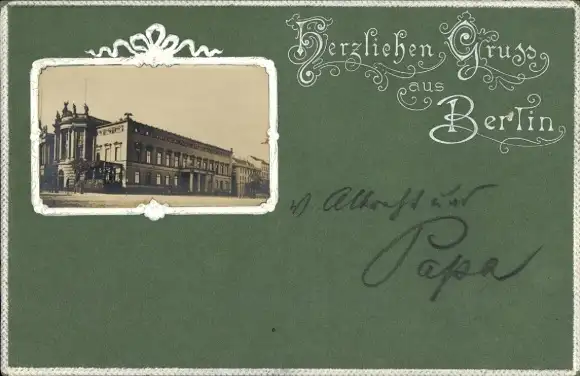 Herzlichen Gruss
aus
Berlin
v Albrecht und
Papa